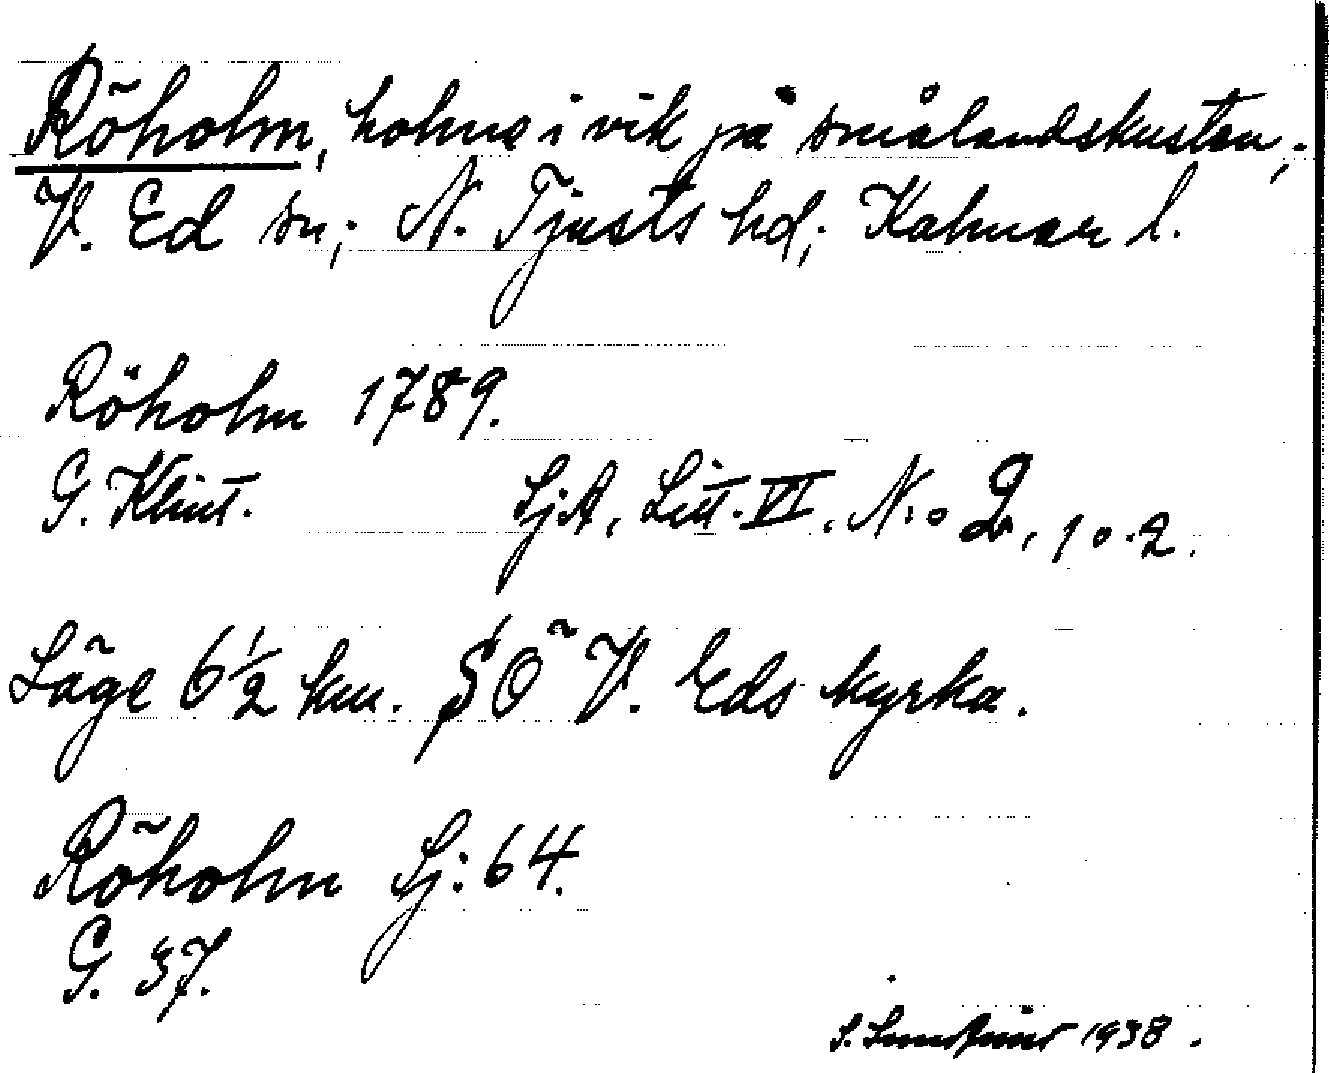 Röholm, holme i vik på smålandskusten,;
V. Ed sn; N. Tjusts hd; Kalmar l.
Röholm 1789.
G. Klint. SjA, Litt. VI. N:o 2, 1 o. 2.
Läge 6 1/2 km. SÖ V. Eds kyrka.
Röholm Sj: 64.
G. 37.
S. 1938.